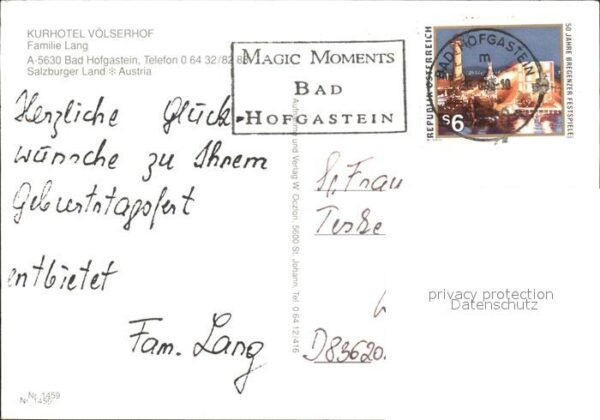 KURHOTEL VÖLSERHOF
Familie Lang
A-5630 Bad Hofgastein, Telefon 0 64 32/82 88
Salzburger Land ✻ Austria
MAGIC MOMENTS
BAD
HOFGASTEIN
BAD HOFGASTEIN
m
REPUBLIK ÖSTERREICH
50 JAHRE BREGENZER FESTSPIELE
S6
Herzliche Glück-
wünsche zu Ihrem
Geburtstagsfest
entbietet
Fam. Lang
Aufnahme und Verlag W. Oczlon, 5600 St. Johann, Tel. 0 64 12/416
Frau
Teske
D83620
privacy protection
Datenschutz
Nr. 1459